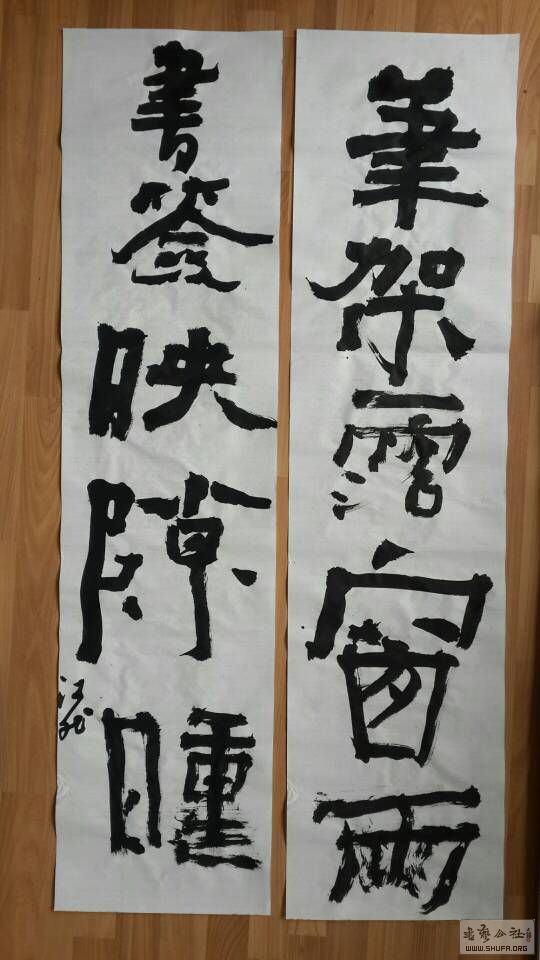 筆架霑窗雨
書簽映隙曛
書藝公社
WWW.SHUFA.ORG